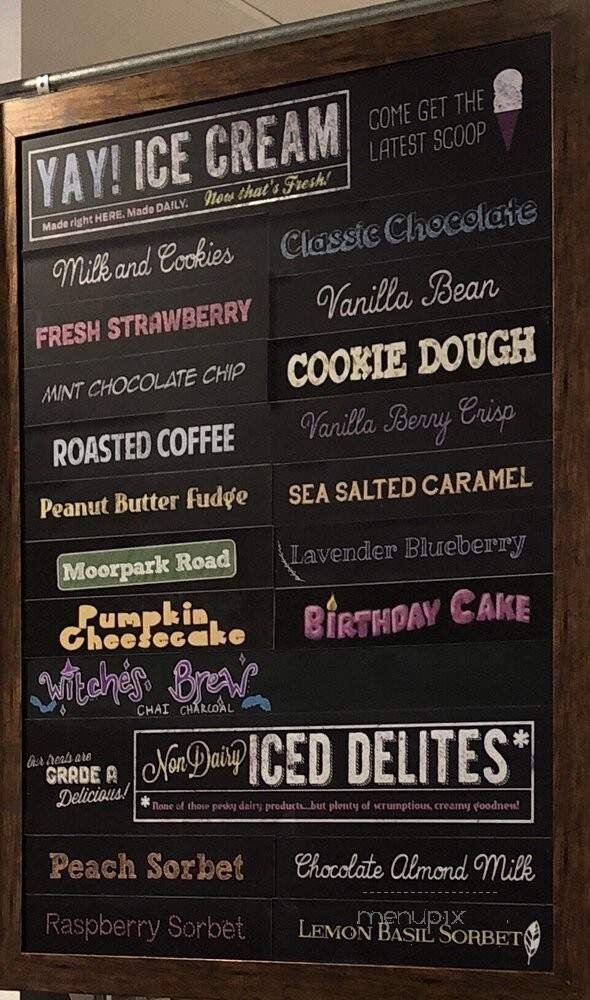 YAY! ICE CREAM
Made right HERE. Made DAILY. Now that's Fresh!
COME GET THE
LATEST SCOOP
Milk and Cookies
Classic Chocolate
FRESH STRAWBERRY
Vanilla Bean
MINT CHOCOLATE CHIP
COOKIE DOUGH
ROASTED COFFEE
Vanilla Berry Crisp
Peanut Butter Fudge
SEA SALTED CARAMEL
Moorpark Road
Lavender Blueberry
Pumpkin
Cheesecake
BIRTHDAY CAKE
Witches Brew
CHAI CHARCOAL
Our treats are
GRADE A
Delicious!
Non Dairy ICED DELITES*
*None of those pesky dairy products...but plenty of scrumptious, creamy goodness!
Peach Sorbet
Chocolate Almond Milk
Raspberry Sorbet
menupix
LEMON BASIL SORBET